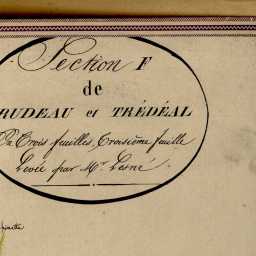 Section F
de
RUDEAU et TRÉDÉAL
En Trois feuilles, Troisième feuille
Levée par Mr. Lesné